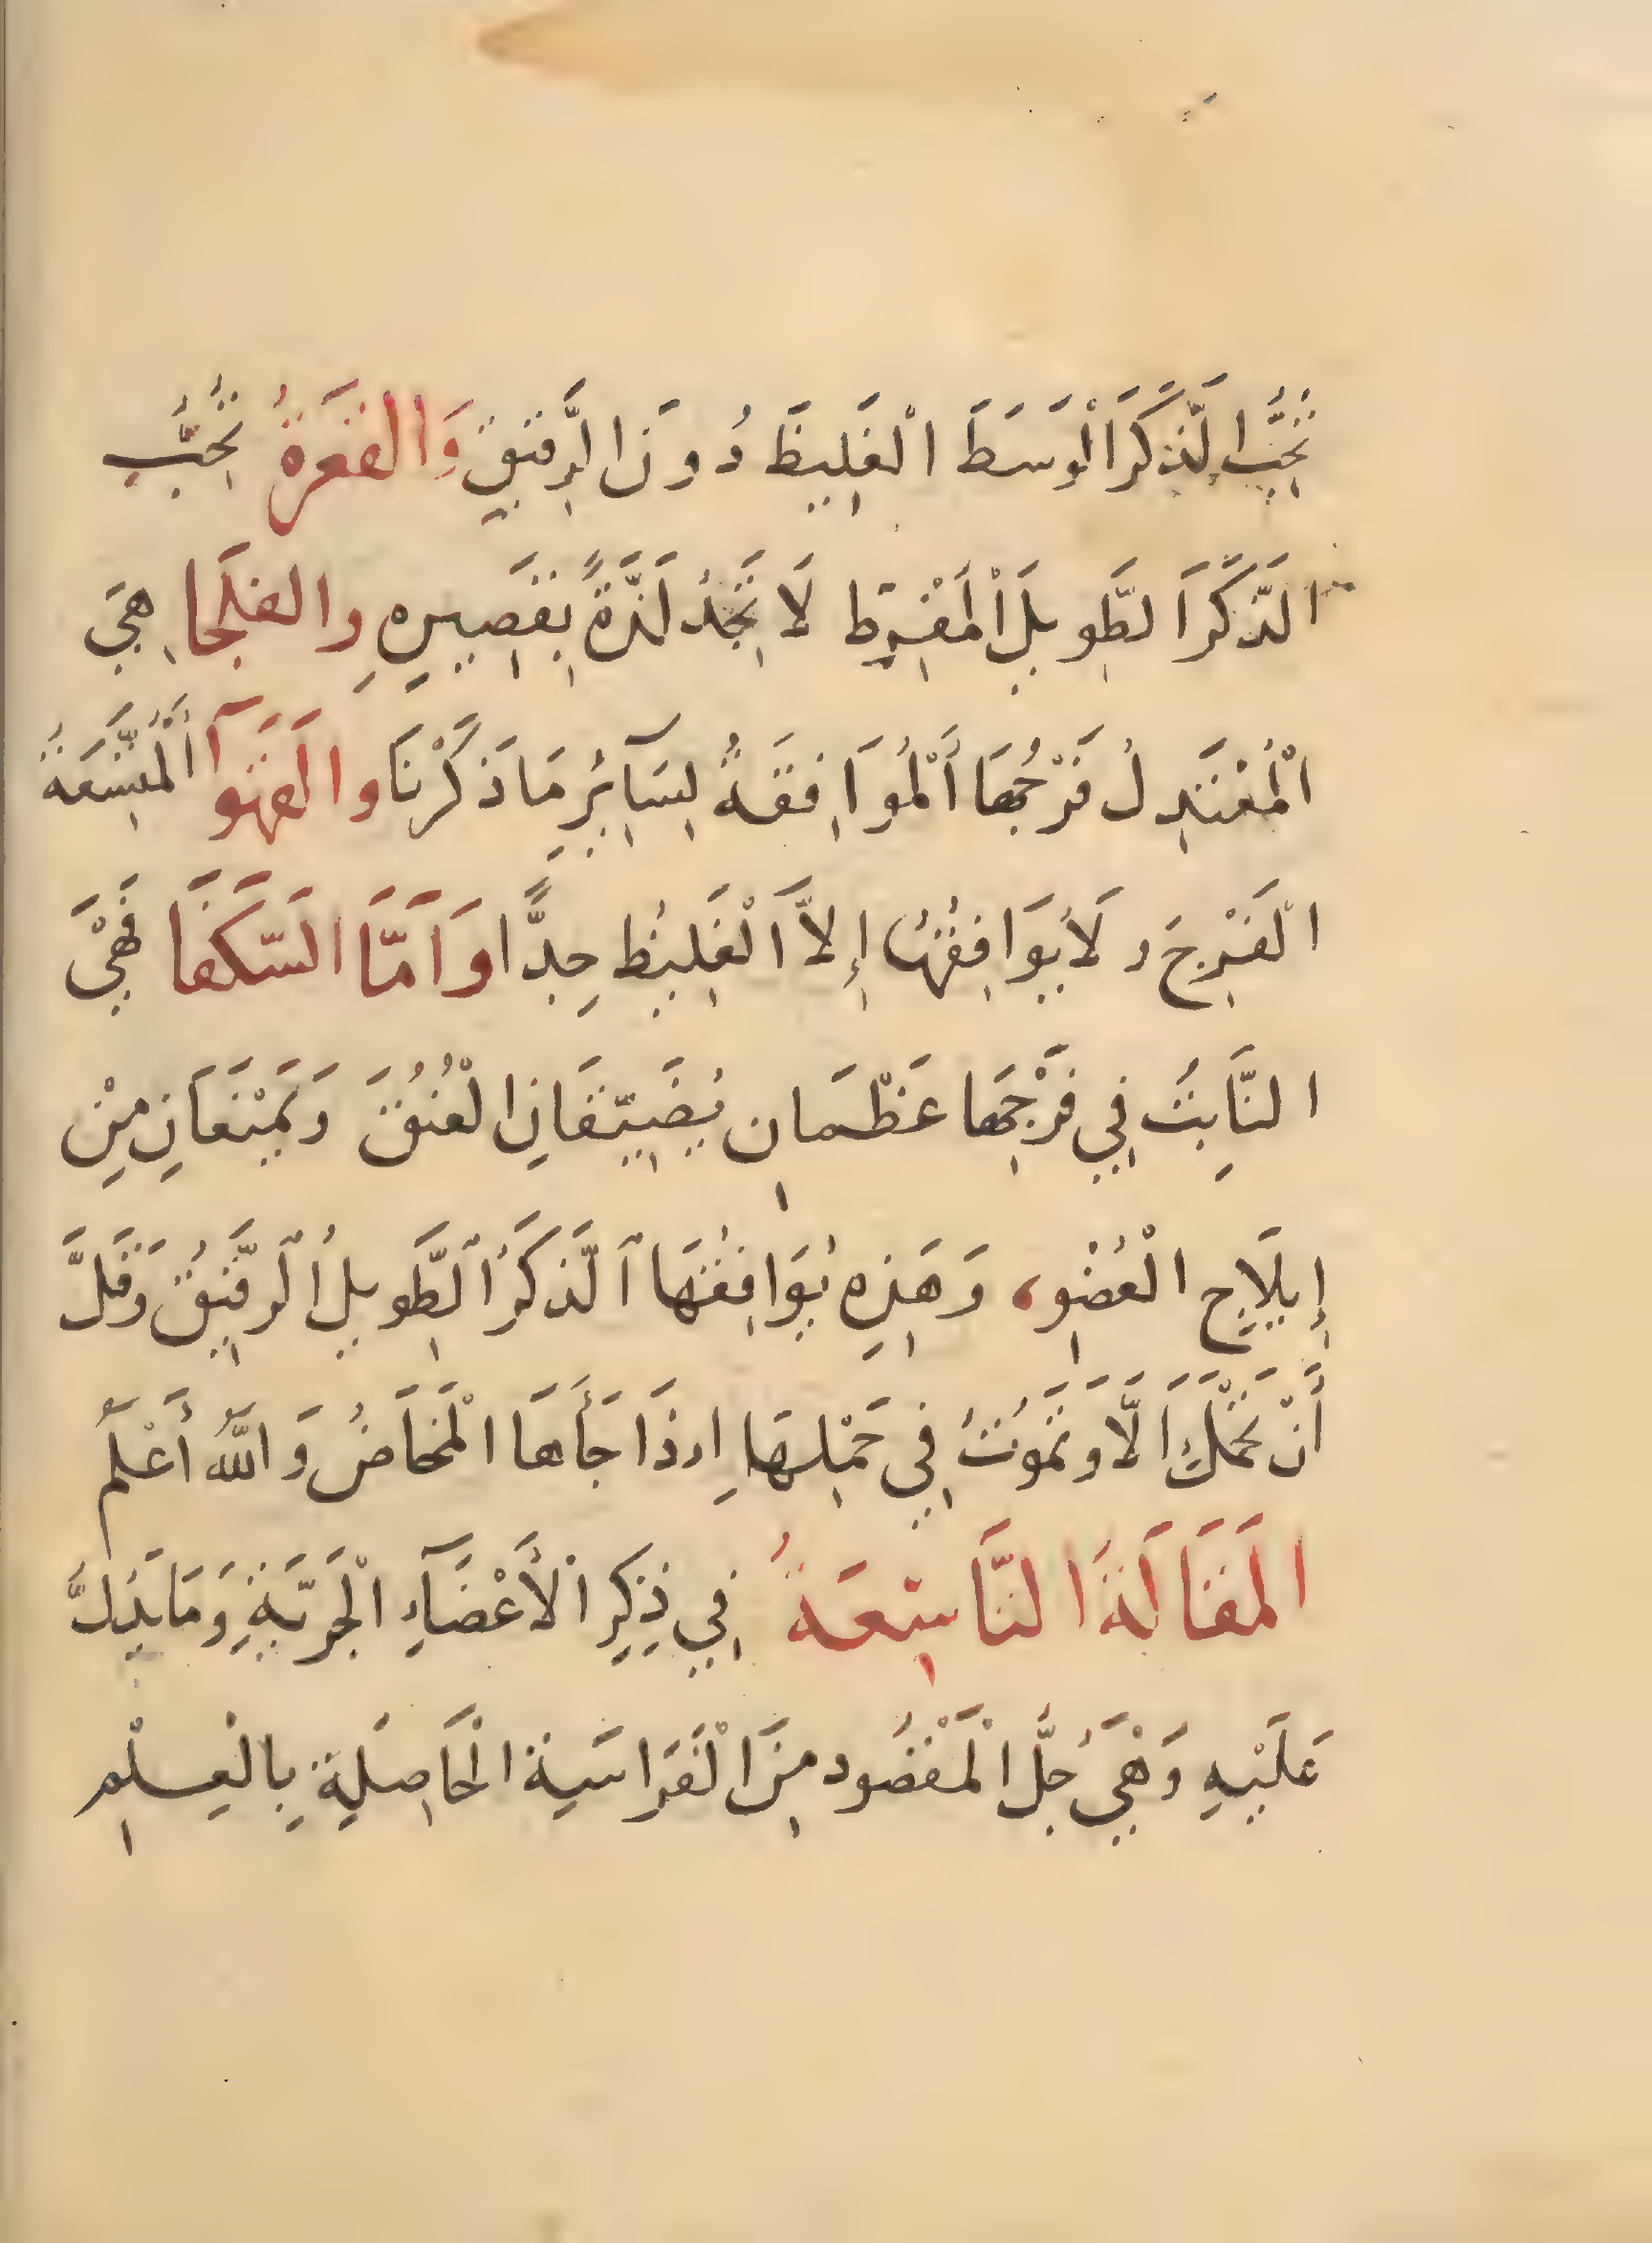 تُحِبُّ الذَّكَرَ الْوَسَطَ الْغَلِيظَ دُونَ الرَّقِيقِ وَالقعرةُ تُحِبُّ
الذَّكَرَ الطَّوِيلَ الْمُفْرِطَ لَا تَجِدُ لَذَّةً بِقَصِيرِهِ والفلجا هِيَ
الْمُعْتَدِلُ فَرْجُهَا الْمُوَافِقَةُ لِسَآئِرِ مَا ذَكَرْنَا والقهوآ الْمُتَّسِعَةُ
الْفَرْجَ ولَا يُوَافِقُهَا إِلَّا الْغَلِيظُ جِدًّا وَأَمَّا السَّكفَا فَهْيَ
النَّابِتُ فِي فَرْجِهَا عَظْمَانِ يُضَيِّقَانِ الْعُنُقَ وَيَمْنَعَانِ مِنْ
إِيلَاجِ الْعُضْوِ، وَهَذِهِ يُوَافِقُهَا الذَّكَرُ الطَّوِيلُ الرَّقِيقُ وَقَلَّ
أَنْ تَحْمَلَ الَّا وَتَمُوتُ فِي حَمْلِهَا اِذَا جَأَهَا الْمَخَاضُ وَاللَّهُ أَعْلَمُ
المَقَالَةُ التَّاسِعَةُ فِي ذِكِرِ الْأَعْضَآءِ الْجَرِيَّةِ وَمَا يَدُلُّ
عَلَيْهِ وَهْيَ جُلُّ الْمَقْصُود مِنَ الْفَرَاسَةِ الْحَاصِلَةِ بِالْعِلْمِ